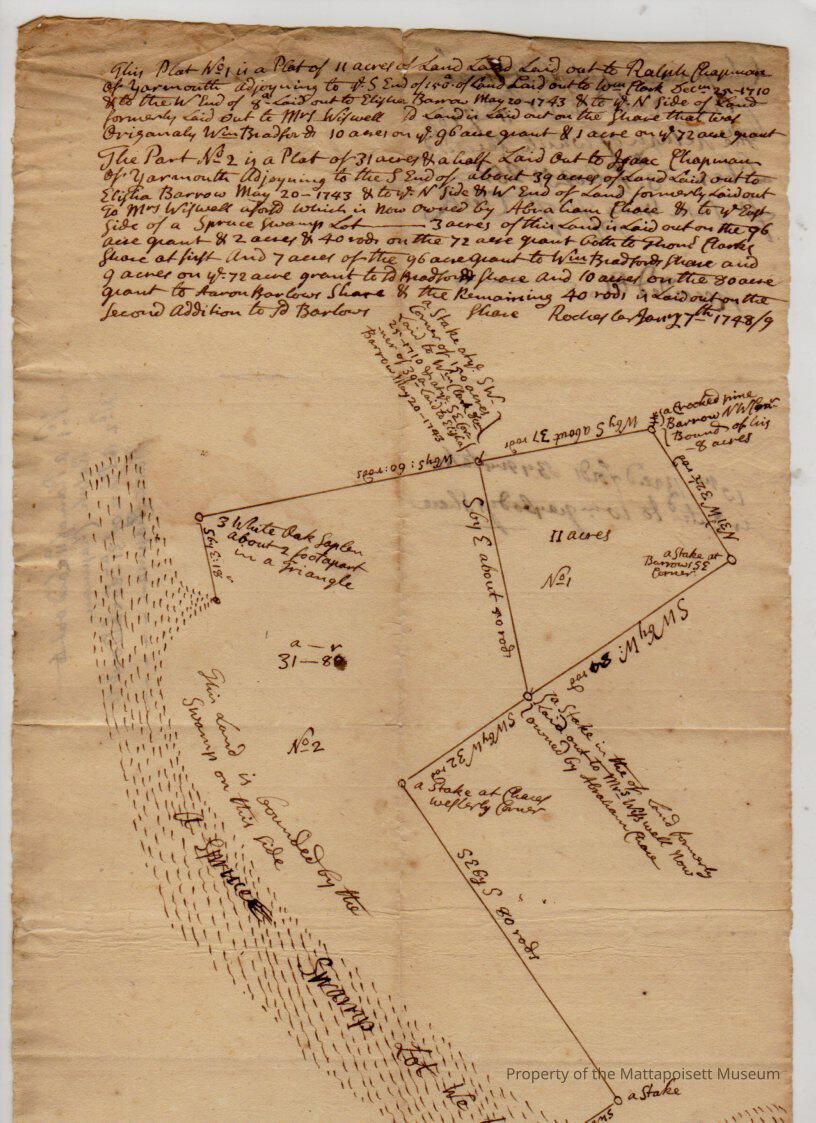 This Plat No1 is a Plat of 11 acres of Land Laid out to Ralph Chapman
of Yarmouth adjoyning to ye S End of 150a of Land Laid out to Wm Clark Decm 25-1710
& to the W End of ya Laid out to Elisha Barrow May 20-1743 & to ye N Side of Land
formerly Laid out to Mrs Wiswell sd Land is Laid out on the Share that was
Origanaly Wm Bradfords 10 acres on ye 96 acre grant & 1 acre on ye 72 acre grant
The Part No 2 is a Plat of 31 acres & a half Laid Out to Isaac Chapman
of Yarmouth Adjoyning to the S End of about 39 acres of Land Laid out to
Elisha Barrow May 20-1743 & to ye N Side & W End of Land formerly Laid out
To Mrs Wiswell afors'd which is Now owned by Abraham Chase & to ye East
Side of a Spruce Swamp Lot 3 acres of this Land is Laid out on the 96
acre grant & 2 acres & 40 rods on the 72 acre grant both to Thomas Clarks
Share at first And 7 acres of the 96 acre grant to Wm Bradfords Share and
9 acres on ye 72 acre grant to sd Bradfords Share And 10 acres on the 80 acre
grant to Aaron Barlows Share & the Remaining 40 rods is Laid out on the
Second Addition to sd Barlows Share Rochester Janry 7th 1748/9
a Stake at ye SW
Corner of 150 acres
Laid to Wm Clark Dec
25-1710 & at ye SE Cor
ner of 39a Laid to Elisha
Barrow May 20-1743
a Crooked pine
Barrow NW Cor
Bound of his
8 acres
W by S about 37 rods
W by S: 60: rods
N 31 W 32 rod
3 White Oak Saplen
about 2 foot apart
in a Triangle
S by E: 18
S by E about 40 rods
11 acres
No1
a Stake at
Barrows SE
Corner
SW by W: 84 rod
a r
31-80
No2
a Stake in the of Land formerly
Laid out to Mrs Wiswell Now
owned by Abraham Chase
SW by W 32 rd
a Stake at Chases
westerly Corner
This Land is bounded by the
Swamp on this Side
A Spruce Swamp Lot We
80 rods
a Stake
Property of the Mattapoisett Museum